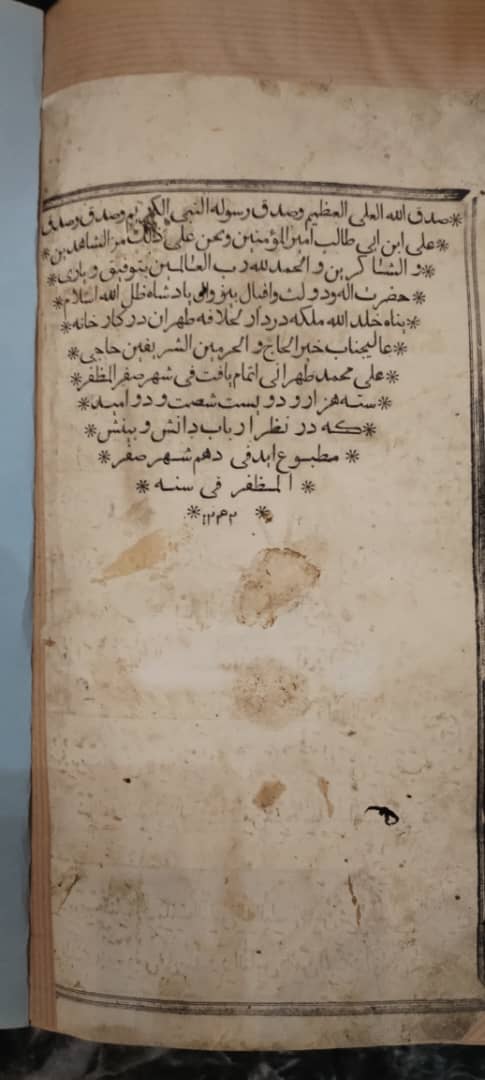 *صدق الله العلی العظیم و صدق رسوله النبی الکریم و صدق و صدق
*علی ابن ابی طالب امیر المؤمنین و نحن علی ذالک من الشاهدین*
*و الشاکرین و الحمد لله رب العالمین بتوفیق و یاری*
*حضرت اله و دولت و اقبال بیزوال پادشاه ظل الله اسلام*
*پناه خلد الله ملکه در دار الخلافه طهران در کار خانه*
*عالیجناب خیر الحاج و الحرمین الشریفین حاجی*
*علی محمد طهرانی اتمام یافت فی شهر صفر المظفر*
*سنه هزار و دویست شصت و دو امید*
*که در نظر ارباب دانش و بینش*
* مطبوع اید فی دهم شهر صفر*
* المظفر فی سنه *
*